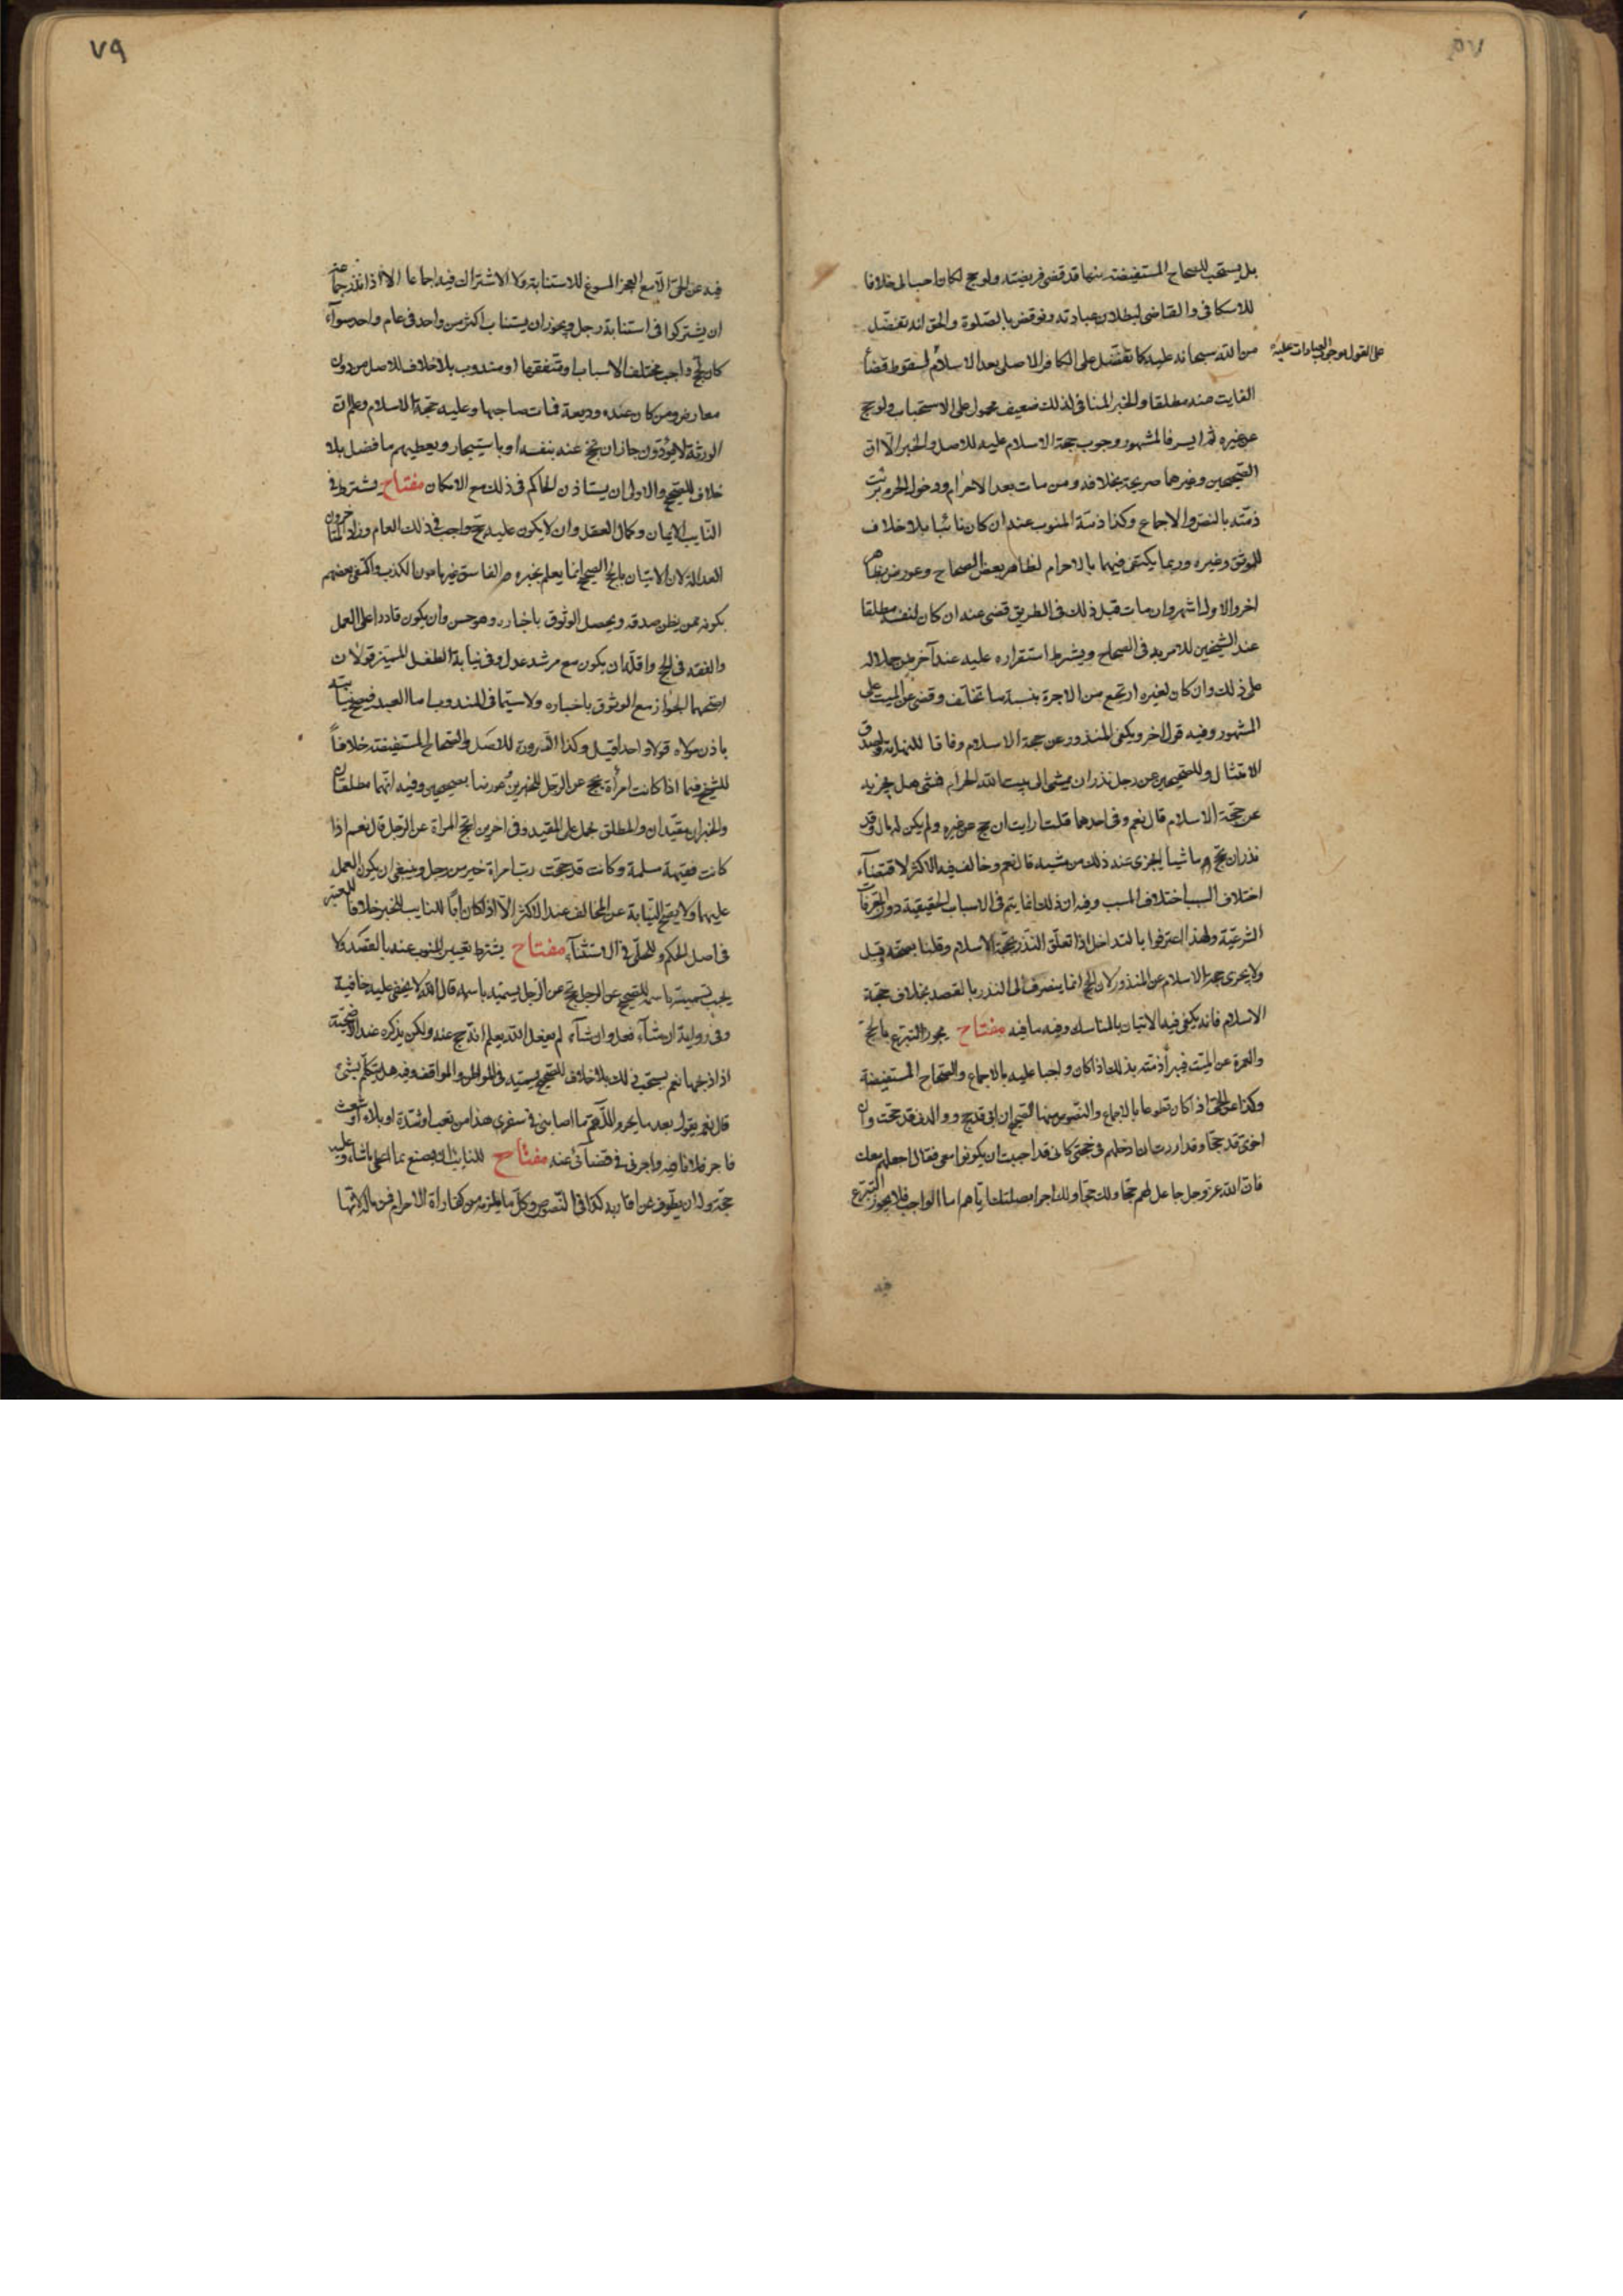 بل يستحب للصحاح المستفيضة منها قد قضى فريضته ولو حج لكان احب الى خلافا
للاسكافي والقاضي لبطلان عبادته ونوقض بالصلوة والحق انه تفضل
من الله سبحانه عليه كما تفضل على الكافر الاصلي بعد الاسلام لسقوط قضاء
على القول بوجوب العبادات عليه
الفايت عنه مطلقا والخبر المنافي لذلك ضعيف محمول على الاستحباب ولو حج
عن غيره ثم ايسر فالمشهور وجوب حجة الاسلام عليه للاصل والخبر الا ان
الصحيحين وغيرهما صريحة بخلافه ومن مات بعد الاحرام ودخول الحرم برئت
ذمته بالنص والاجماع وكذا ذمة المنوب عنه ان كان نائبا بلا خلاف
للموثق وغيره وربما يكتفى فيهما بالاحرام لظاهر بعض الصحاح وعورض بظاهر
اخر والاول اشهر وان مات قبل ذلك في الطريق قضى عنه ان كان لنفسه مطلقا
عند الشيخين للامر به في الصحاح ويشترط استقراره عليه عند آخرين
على ذلك وان كان لغيره ارتجع من الاجرة بنسبة ما تخلف وقضى عن الميت على
المشهور وفيه قول اخر ويكفي المنذور عن حجة الاسلام وفاقا للنهاية لصدق
الامتثال وللصحيحين عن رجل نذر ان يمشي الى بيت الله الحرام فمشى هل يجزيه
عن حجة الاسلام قال نعم وفي احدهما قلت ارايت ان حج عن غيره ولم يكن له مال وقد
نذر ان يحج ماشيا ايجزى عنه ذلك من مشيه قال نعم وخالف فيه الاكثر لاقتضاء
اختلاف السبب اختلاف المسبب وفيه ان ذلك انما يتم في الاسباب الحقيقية دون المعرفات
الشرعية ولهذا اعترفوا بالتداخل اذا تعلق النذر بحجة الاسلام وقلنا بصحته وقيل
ولا يجزى حجة الاسلام عن المنذور لان الحج انما ينصرف الى النذر بالقصد بخلاف حجة
الاسلام فانه يكفي فيه الاتيان بالمناسك وفيه ما فيه مفتاح يجوز التبرع بالحج
والعمرة عن الميت فيبرأ ذمته بذلك اذا كان واجبا عليه بالاجماع والصحاح المستفيضة
وكذا عن الحي اذا كان تطوعا بالاجماع والنصوص منها الصحيح ان ابي قد حج ووالدتي قد حجت وان
اخوي قد حجا وقد اردت ان ادخلهم في حجتي كاني قد احببت ان يكونوا معي فقال اجعلهم معك
فان الله عز وجل جاعل لهم حجا ولك حجا ولك اجرا بصلتك اياهم اما الواجب فلا يجوز التبرع
فيه
٧٩
فيه عن الحي الا مع العجز المسوغ للاستنابة ولا الاشتراك فيه اجماعا الا اذا نذر جماعة
ان يشتركوا في استنابة رجل ويجوز ان يستناب اكثر من واحد في عام واحد سواء
كان لحج واجب مختلف الاسباب او متفقها او مندوب بلا خلاف للاصل من دون
معارض ومن كان عنده وديعة فمات صاحبها وعليه حجة الاسلام وعلم ان
الورثة لا يؤدون جاز ان يحج عنه بنفسه او باستيجار ويعطيهم ما فضل بلا
خلاف للصحيح والاولى ان يستاذن الحاكم في ذلك مع الامكان مفتاح يشترط في
النايب الايمان وكمال العقل وان لا يكون عليه حج واجب في ذلك العام وزاد المتاخرون
العدالة لان الاتيان بالحج الصحيح انما يعلم بخبره والفاسق غير مامون الكذب واكتفى بعضهم
بكونه ممن يظن صدقه ويحصل الوثوق باخباره وهو حسن وان يكون قادرا على العمل
والفقه في الحج واقله ان يكون مع مرشد عدل وفي نيابة الطفل المميز قولان
اصحهما الجواز مع الوثوق باخباره ولا سيما في المندوب اما العبد فيصح نيابته
باذن مولاه قولا واحدا قيل وكذا الصرورة للاصل والصحاح المستفيضة خلافا
للشيخ فيما اذا كانت امرأة تحج عن الرجل للخبرين عورضا بصحيحين وفيه انهما مطلقان
والخبران مقيدان والمطلق يحمل على المقيد وفي اخرين اتحج المراة عن الرجل قال نعم اذا
كانت فقيهة مسلمة وكانت قد حجت رب امراة خير من رجل وينبغي ان يكون العمل
عليهما ولا يصح النيابة عن المخالف عند الاكثر الا اذا كان ابا للنايب للخبر خلافا للمعتبر
في اصل الحكم وللحلي في الاستثناء مفتاح يشترط تعيين المنوب عنه بالقصد ولا
يجب تسميته باسمه للصحيح عن الرجل يحج عن الرجل يسميه باسمه قال الله لا يخفى عليه خافية
وفي رواية ان شاء فعل وان شاء لم يفعل الله يعلم انه حج عنه ولكن يذكره عند الاضحية
اذا ذبحها نعم يستحب ذلك بلا خلاف للصحيح يسميه في المواطن والمواقف وفيه هل يتكلم بشيء
قال نعم يقول بعد ما يحرم اللهم ما اصابني في سفري هذا من تعب او شدة او بلاء او شعث
فاجر فلانا فيه واجرني في قضائي عنه مفتاح للنايب ان يصنع بما اعطى ما شاء وعليه
حجة وله ان يطوف عن اقاربه كذا في النصوص وكل ما يلزمه من كفارات الاحرام فمن ماله لانها